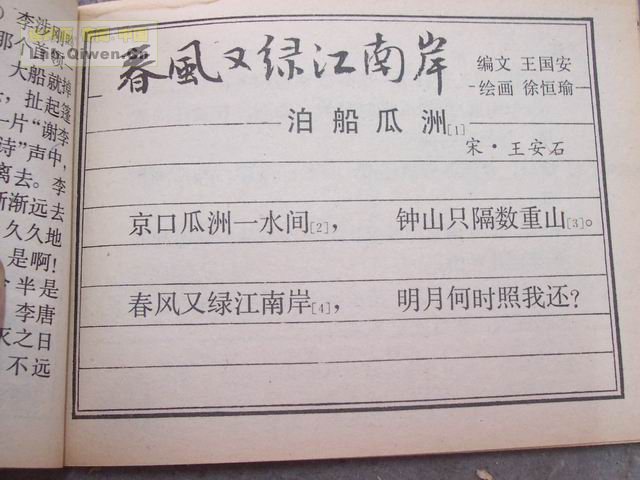 李涉刚
那个首
大船就掉
，扯起篷
一片“谢李
诗”声中，
离去。李
渐渐远去
久久地
是啊！
个半是
李唐
灭之日
不远
春風又绿江南岸
编文 王国安
绘画 徐恒瑜
泊船瓜洲[1]
宋·王安石
京口瓜洲一水间[2]， 钟山只隔数重山[3]。
春风又绿江南岸[4]， 明月何时照我还？